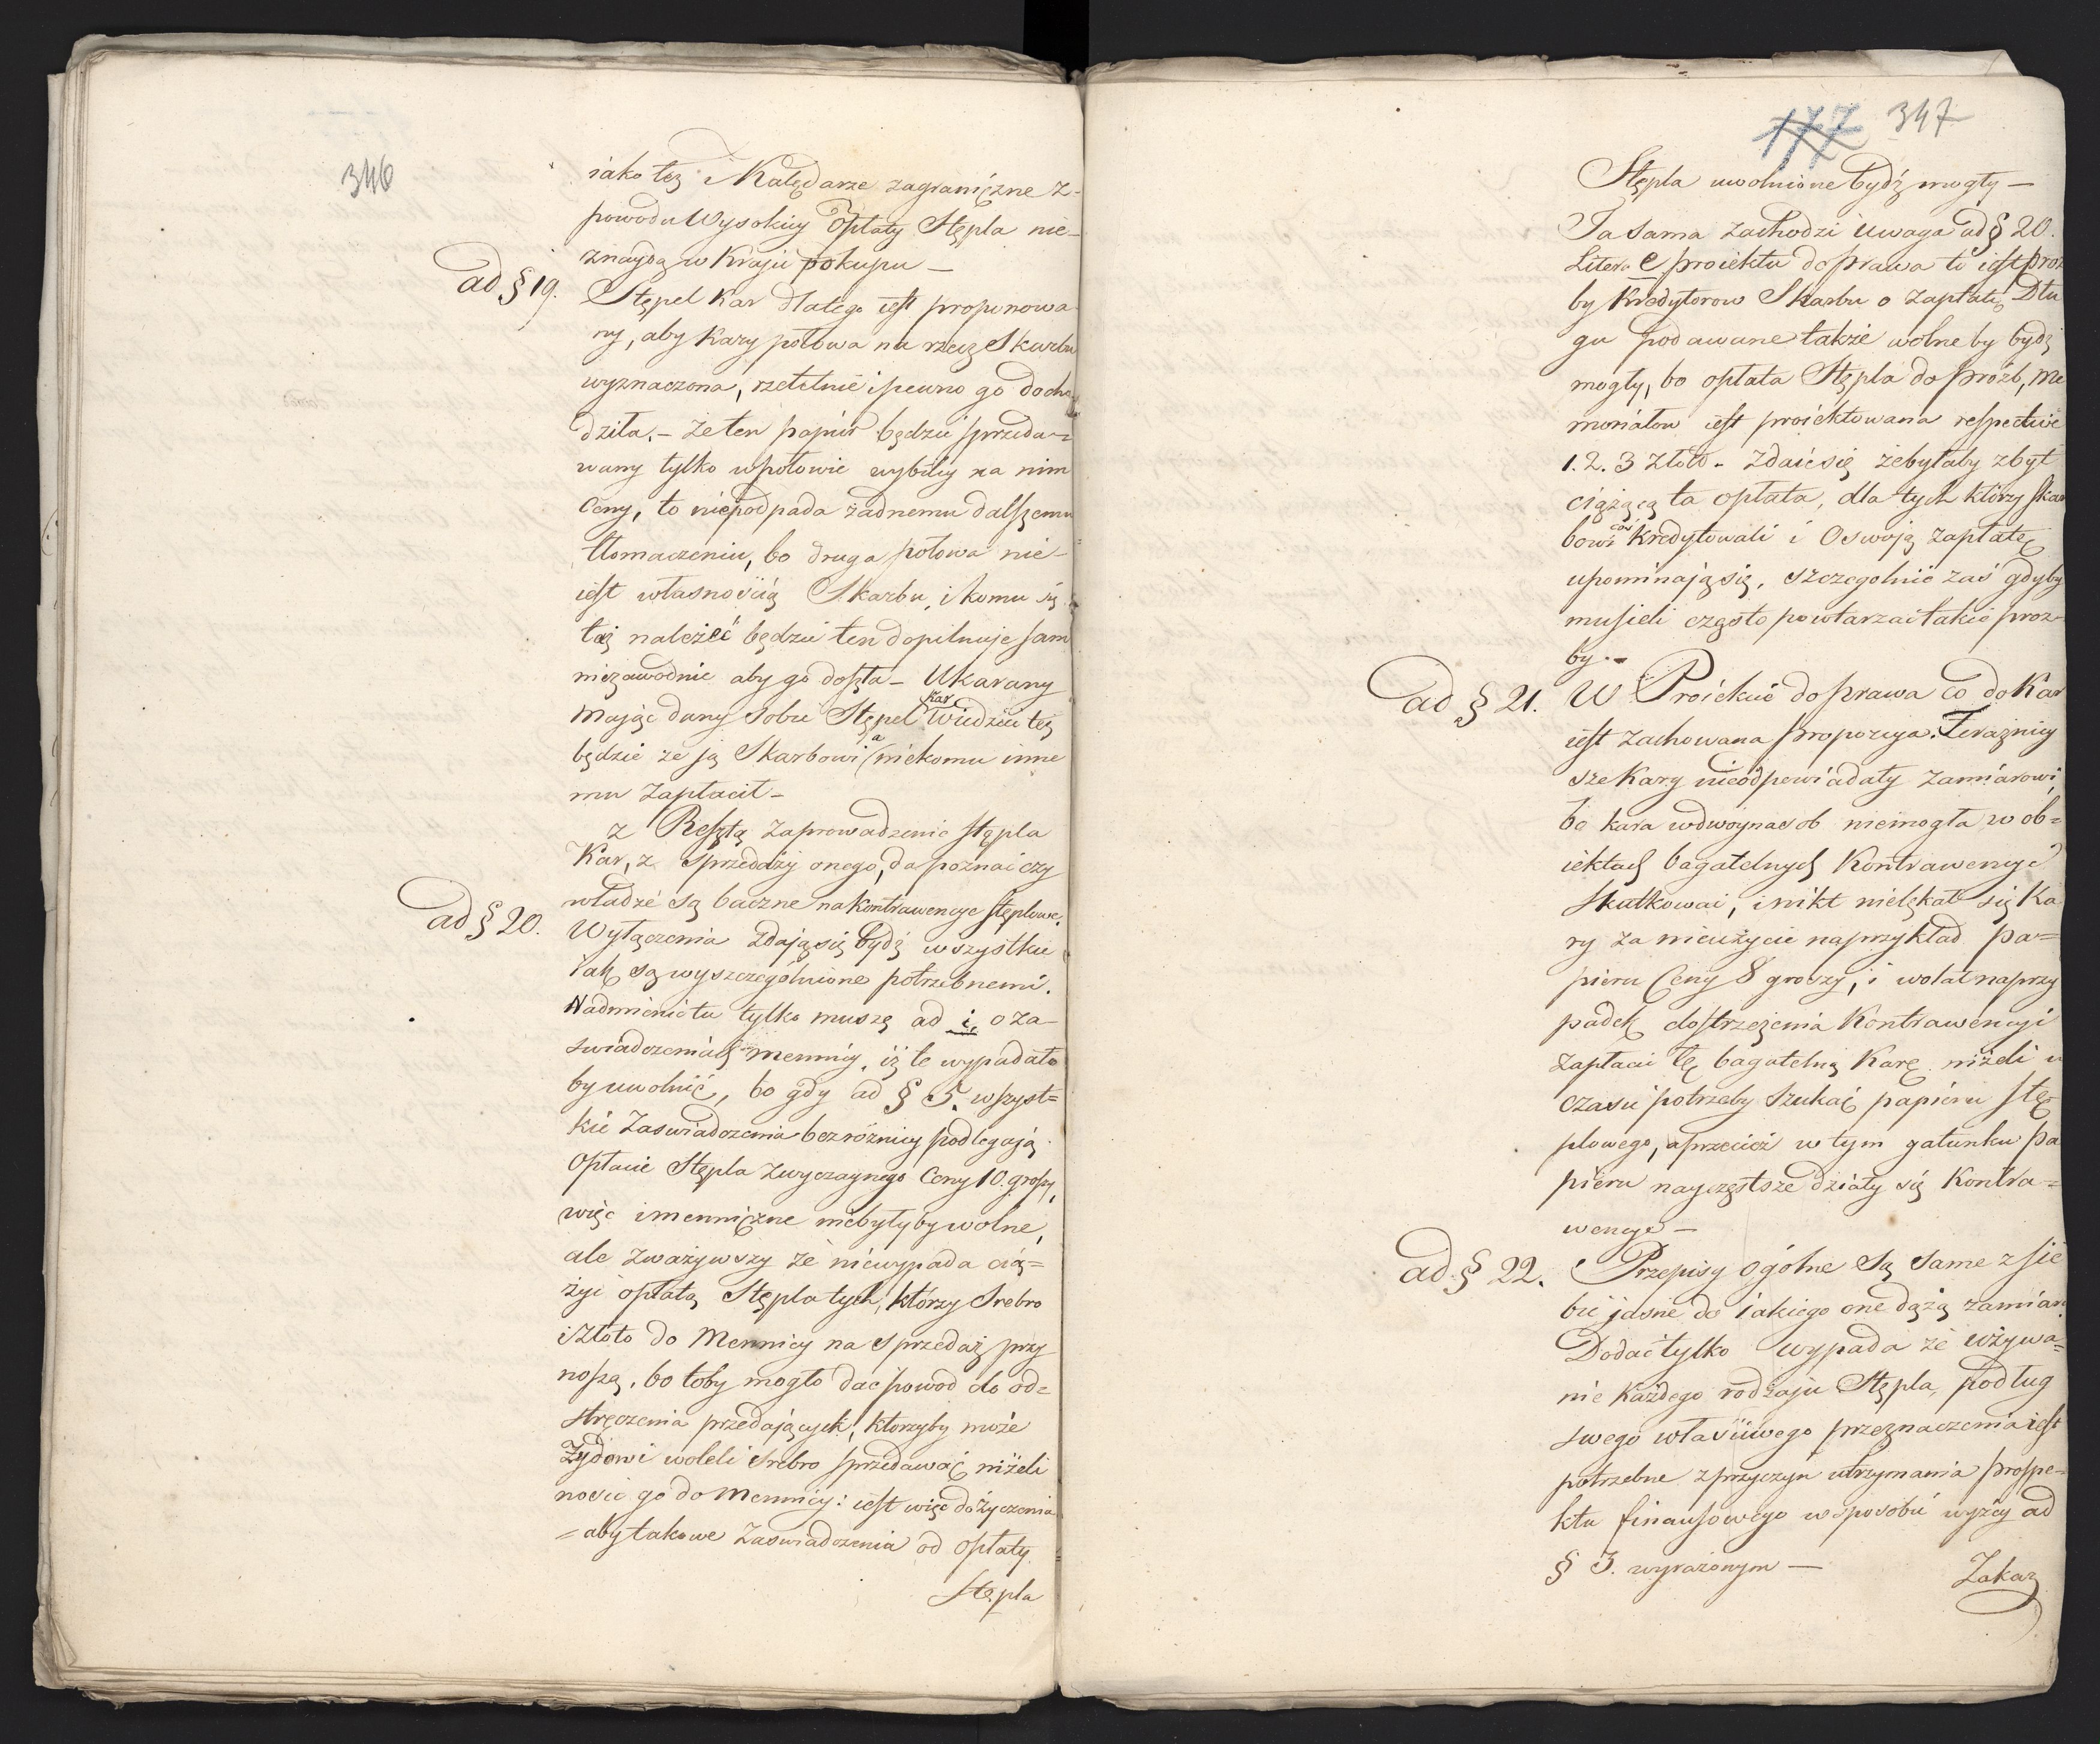 346
iako też i Kalędarze zagraniczne z-
powodu Wysokiey Opłaty Stępla nie-
znaydą w Kraju pokupu —
ad § 19. Stępel Kar dlatego iest proponowa
ny, aby Kary połowa na rzecz Skarbu
wyznaczona, rzetelnie i pewno go docho
dziła. – że ten papier będzie sprzeda-
wany tylko w połowie wybitey na nim
Ceny, to niepodpada żadnemu dalszemu
tłomaczeniu, bo druga połowa nie-
iest własnością Skarbu, i komu się
taż należeć będzie ten dopilnuje sam
niezawodnie aby go doszła – Ukarany
Mając dany sobie Stępel Kar Wiedzieć też
będzie że ją Skarbowi a niekomu inne
mu Zapłacił –
z Resztą zaprowadzenie stępla
Kar, z sprzedaży onego, da poznać czy
władze są baczne na Kontrawencye stęplowe.
ad § 20. Wyłączenia zdają się bydź wszystkie
iak są wyszczególnione potrzebnemi.
Nadmienić tu tylko muszę ad i, o za-
swiadczeniach mennicy, iż te wypadało
by uwolnić, bo gdy ad § 5. wszyst=
kie Zaswiadczenia bez różnicy podlegają
Opłacie Stępla zwyczaynego Ceny 10. groszy,
więc i menniczne niebyłyby wolne,
ale zważywszy że niewypada cią=
żyć opłatą Stępla tych, którzy Srebro
i Złoto do Mennicy na sprzedaż przy
noszą, bo toby mogło dać powód do od=
stręczenia przedających, ktorzyby może
Żydowi woleli srebro sprzedawać niżeli
nosić go do Mennicy: iest więc do życzenia
= aby takowe Zaswiadczenia od opłaty
Stępla
177 347
Stępla uwolnione bydź mogły —
Ta sama zachodzi Uwaga ad § 20.
Litera e proiektu do prawa to iest proz
by Kredytorow Skarbu o zapłatę Dłu
gu podawane także wolne by bydź
mogły, bo opłata Stępla do próźb, Me
moriałow iest proiektowana respective
1. 2. 3 Złoto – Zdaie się żebyłaby zbyt
ciążącą ta opłata, dla tych którzy skar
bowi coś kredytowali i O swoją zapłatę
upominają się, szczegolnie zaś gdyby
musieli często powtarzać takie proz-
by. –
ad § 21. W Proiekcie do prawa co do Kar
iest zachowana proporcya. Teraźniey
sze Kary nieodpowiadały zamiarowi,
bo kara wdwoynasob niemogła w ob=
iektach bagatelnych Kontrawencye
skutkować, i nikt nielękał się Ka
ry za nieużycie naprzykład pa=
pieru Ceny 8 groszy, i wolał naprzy
padek dostrzeżenia Kontrawencyi
zapłacić tę bagatelną Karę niżeli w
czasie potrzeby szukać papieru stę
plowego, a przecież w tym gatunku pa
pieru nayczęstsze działy się Kontra=
wencye —
ad § 22. Przepisy ogólne są same z sie
bie jasne do iakiego one dążą zamiaru.
Dodać tylko wypada że używa=
nie każdego rodzaju Stępla, podług
swego właściwego przeznaczenia iest
potrzebne z przyczyn utrzymania prospe-
ktu finansowego w sposobie wyżey ad
§ 3. wyrażonym —
Zakaz